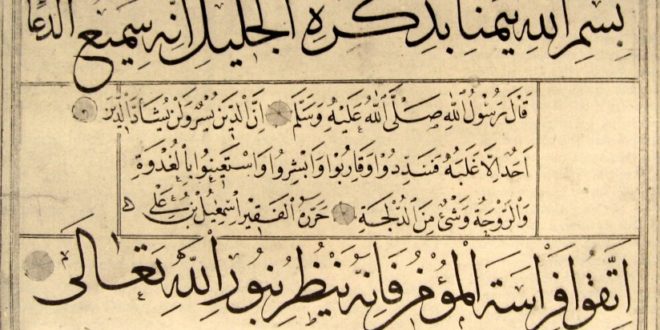 بسم الله تيمنا بذكره الجليل انه سميع الدعا
قَالَ رَسُولُ اللهِ صَلَّى اللهُ عَلَيْهِ وَسَلَّمَ إِنَّ الدِّينَ يُسْرٌ وَلَنْ يُشَادَّ الدِّينَ
أَحَدٌ إِلَّا غَلَبَهُ فَسَدِّدُوا وَقَارِبُوا وَابْشِرُوا وَاسْتَعِينُوا بِالْغُدْوَةِ
وَالرَّوْحَةِ وَشَيْءٍ مِنَ الدُّلْجَةِ حرره الفقير اسمعيل بن علي
اتقوا فراسة المؤمن فانه ينظر بنور الله تعالى